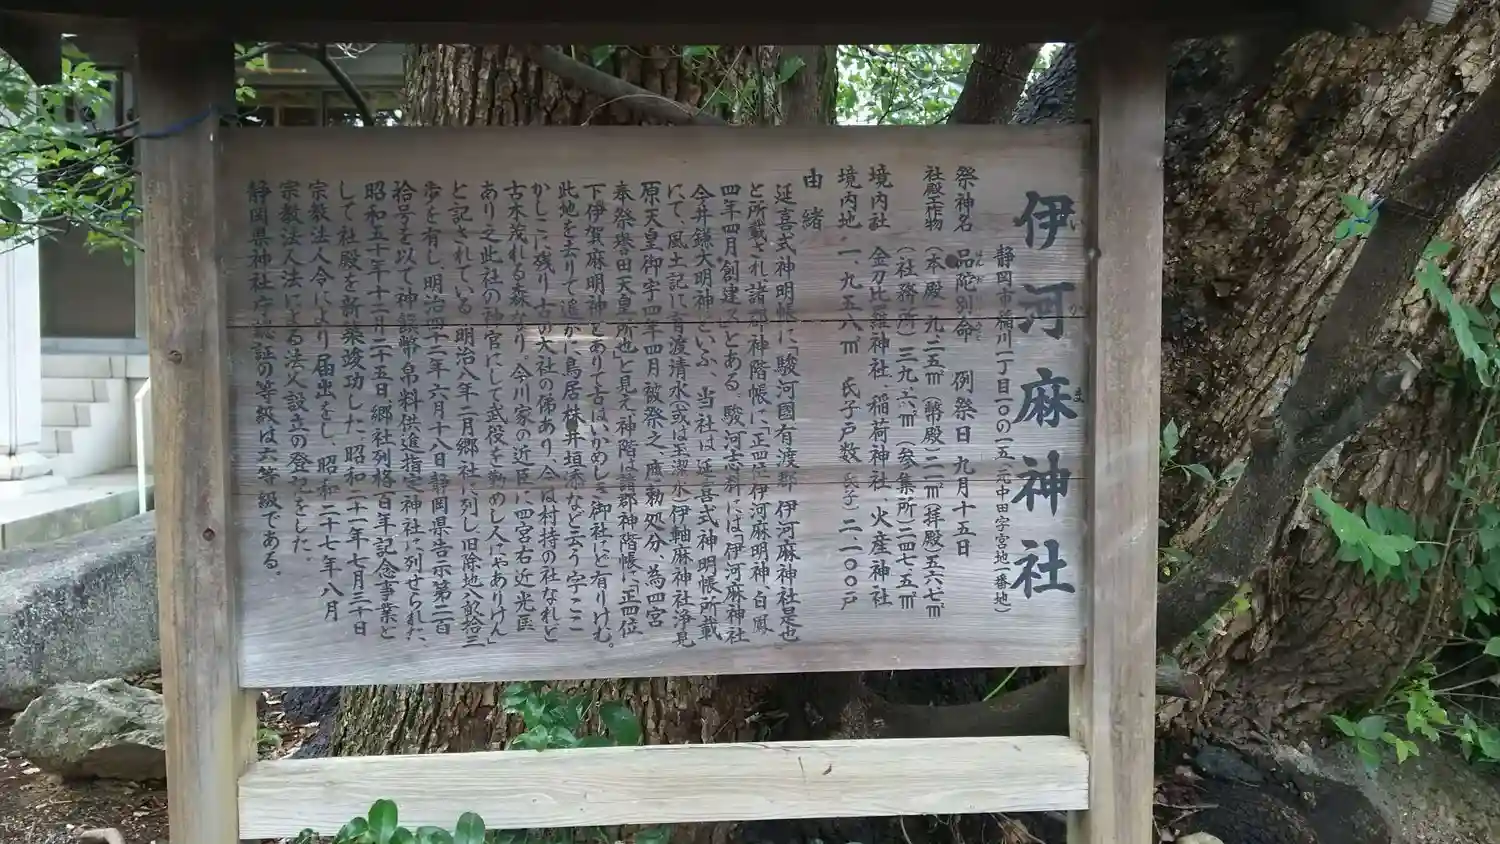 伊河麻神社
いかま
静岡市稲川一丁目一〇の一五(元中田字宮地一番地)
祭神名 品陀別命 例祭日 九月十五日
社殿工作物 (本殿)九、二五㎡(幣殿)二一㎡(拝殿)五六、七㎡
(社務所)三九、六㎡(参集所)二四七、五㎡
境内社 金刀比羅神社、稲荷神社、火産神社
境内地 一、九五八㎡ 氏子戸数(氏子)二、一〇〇戸
由緒
延喜式神明帳に「駿河國有渡郡 伊河麻神社是也
と所載され諸郡神階帳に「正四位伊河麻明神 白鳳
四年四月 創建ス」とある。駿河志料には「伊河麻神社
今井鎌大明神といふ 当社は延喜式神明帳所載
にて、風土記に有渡清水(或は玉潔水)伊軸麻神社浄見
原天皇御宇四年四月被祭之、應勅処分、為四宮
奉祭誉田天皇所也」と見え「神階は諸郡神階帳に正四位
下伊賀麻明神とありて古はいかめしき御社にど有りけむ。
此地を去りて遙かに鳥居株、井垣添など云う字ここ
かしこに残り古の大社の俤あり、今は村持の社なれど
古木茂れる森なり、今川家の近臣に四宮右近光匡
あり之此社の神官にして武役を勤めし人にやありけん」
と記されている 明治八年二月郷社に列し旧除地八畝拾三
歩を有し、明治四十二年六月十八日静岡県告示第二百
拾号を以て神饌幣帛料供進指定神社に列せられた、
昭和五十年十二月二十五日郷社列格百年記念事業と
して社殿を新築竣功した 昭和二十一年七月三十日
宗教法人令により届出をし、昭和二十七年八月
宗教法人法による法人設立の登記をした
静岡県神社庁認証の等級は六等級である。